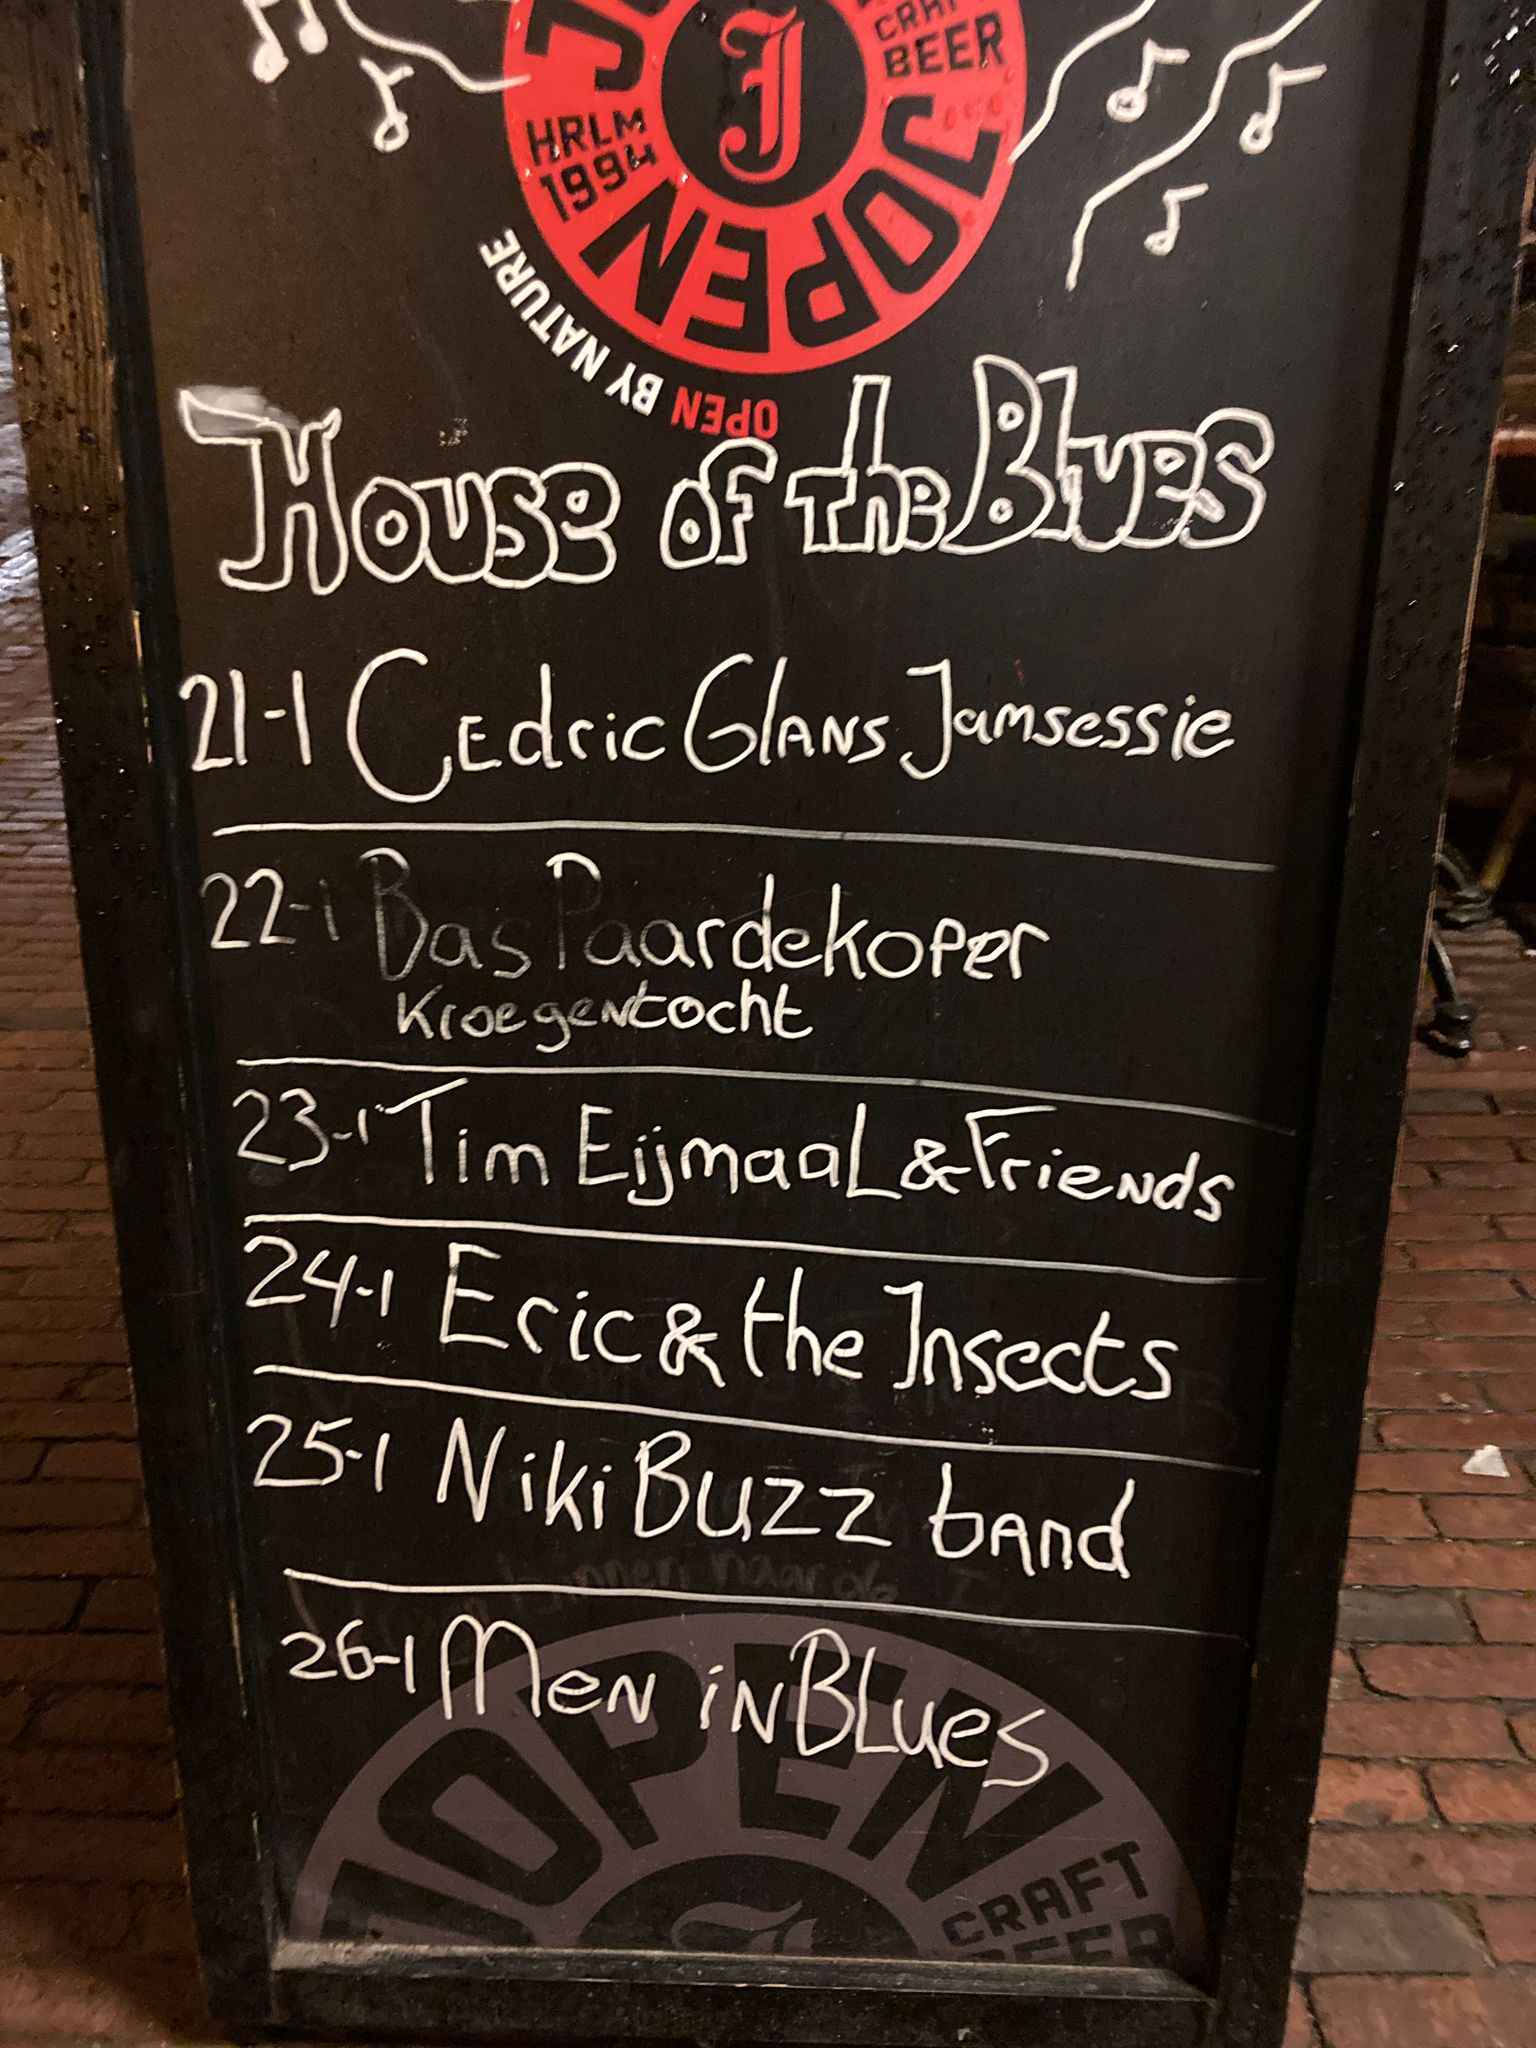 CRAFT
BEER
HRLM
1994
J
JOPEN
OPEN BY NATURE
House of the Blues
21-1 Cedric Glans Jamsessie
22-1 Bas Paardekoper
Kroegentocht
23-1 Tim Eijmaal & Friends
24-1 Eric & the Insects
25-1 Niki Buzz band
26-1 Men in Blues
JOPEN
CRAFT
BEER